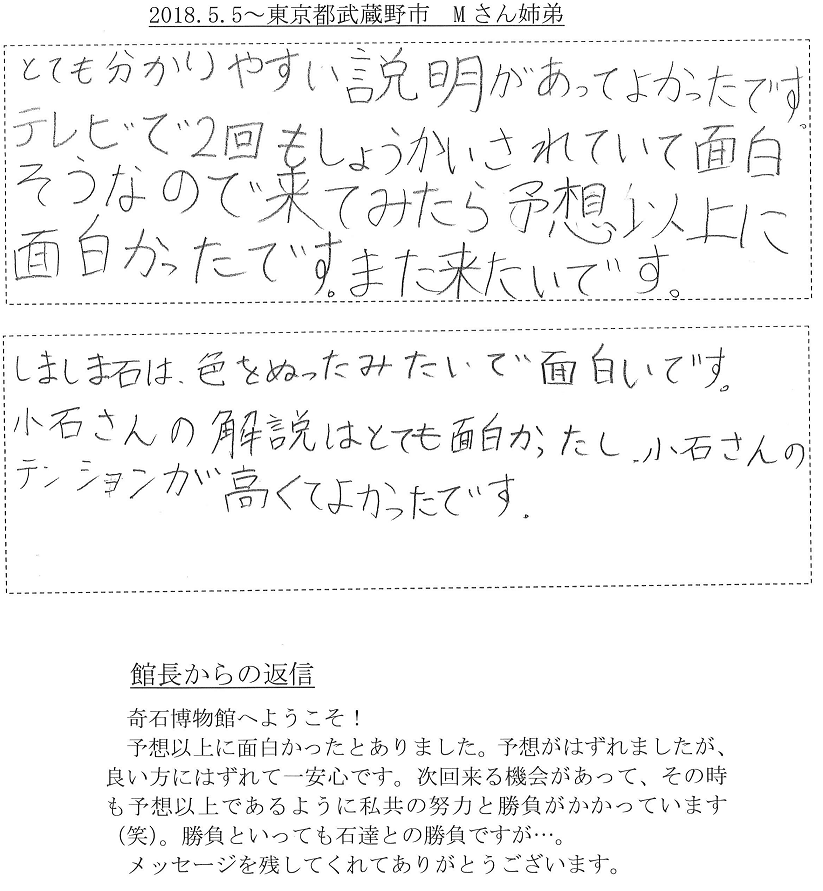 2018.5.5～東京都武蔵野市　Mさん姉弟
とても分かりやすい説明があってよかったです。
テレビで2回もしょうかいされていて面白
そうなので来てみたら予想以上に
面白かったです。また来たいです。
しましま石は、色をぬったみたいで面白いです。
小石さんの解説はとても面白かったし、小石さんの
テンションが高くてよかったです。
館長からの返信
奇石博物館へようこそ！
予想以上に面白かったとありました。予想がはずれましたが、
良い方にはずれて一安心です。次回来る機会があって、その時
も予想以上であるように私共の努力と勝負がかかっています
（笑）。勝負といっても石達との勝負ですが…。
メッセージを残してくれてありがとうございます。